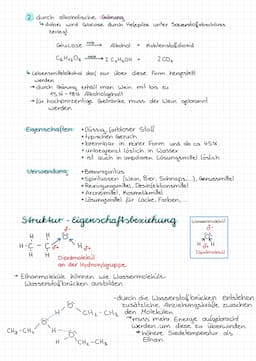 2. durch alkoholische Gärung
↳ dabei wird Glucose durch Hefepilze unter Sauerstoffabschluss
zerlegt
Glucose → Alkohol + Kohlenstoffdioxid
C₆H₁₂O₆ → 2 C₂H₅OH + 2 CO₂
↳ Lebensmittelalkohol darf nur über diese Form hergestellt
werden
→ durch Gärung erhält man Wein mit bis zu
15% - 18% Alkoholgehalt
→ für hochprozentige Getränke muss der Wein gebrannt
werden
Eigenschaften: • flüssig, farbloser Stoff
• typischen Geruch
• brennbar in reiner Form und ab ca 45%
• unbegrenzt löslich in Wasser
• ist auch in unpolaren Lösungsmittel löslich
Verwendung: • Brennspiritus
• Spirituosen (Wein, Bier, Schnaps,...), Genussmittel
• Reinigungsmittel, Desinfektionsmittel
• Arzneimittel, Kosmetikmittel
• Lösungsmittel für Lacke, Farben,...
Struktur-Eigenschaftsbeziehung
Wassermolekül
Dipolmolekül
H H
H - C - C
H H
Dipolmolekül
an der Hydroxylgruppe
→ Ethanolmoleküle können wie Wassermoleküle
Wasserstoffbrücken ausbilden
- durch die Wasserstoffbrücken entstehen
zusätzliche Anziehungskräfte zwischen
den Molekülen
→ muss mehr Energie aufgebracht
werden, um diese zu überwinden
→ höhere Siedetemperatur als
Ethan
CH₂ - CH₃
CH₃ - CH₂
CH₂ - CH₃